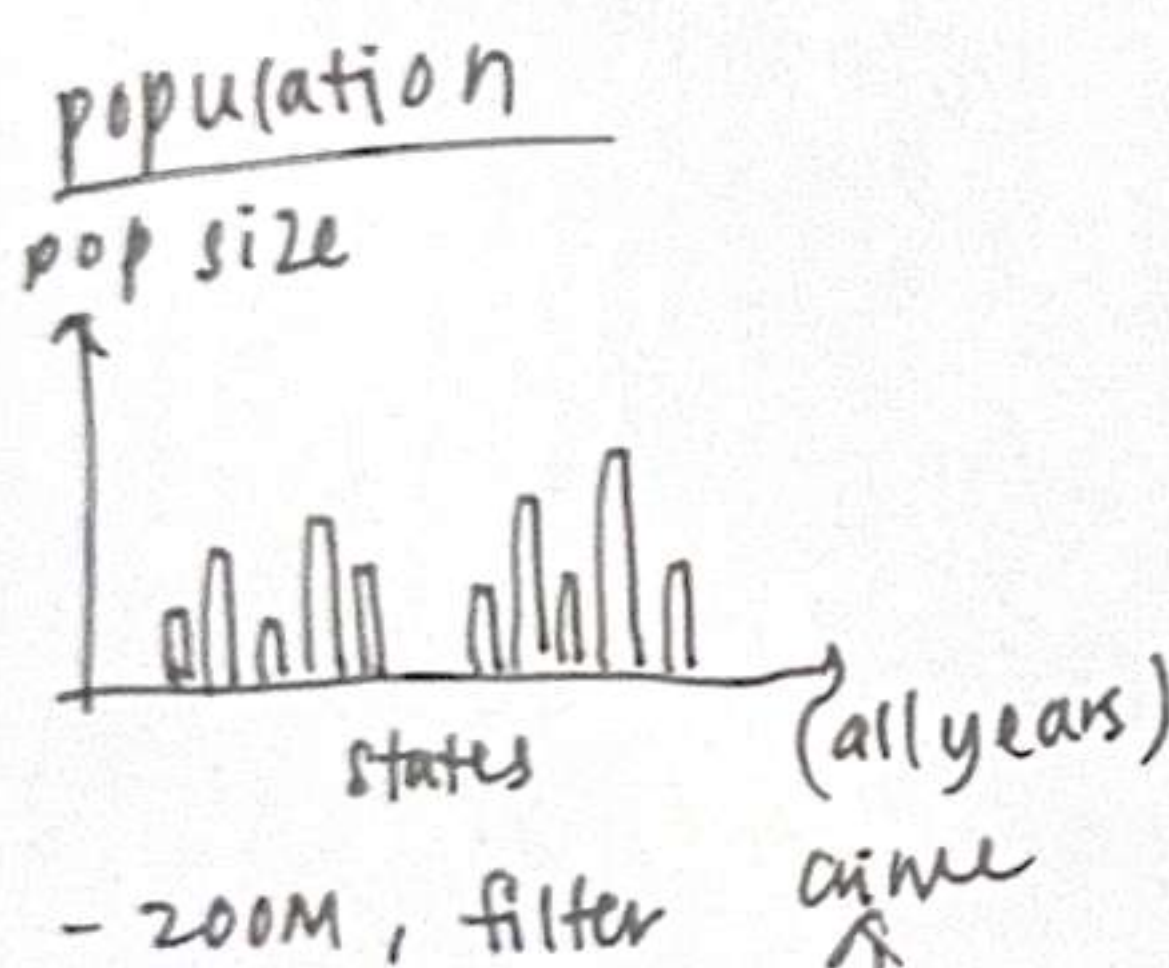 population
pop size
states
(all years)
- 200M, filter
crime